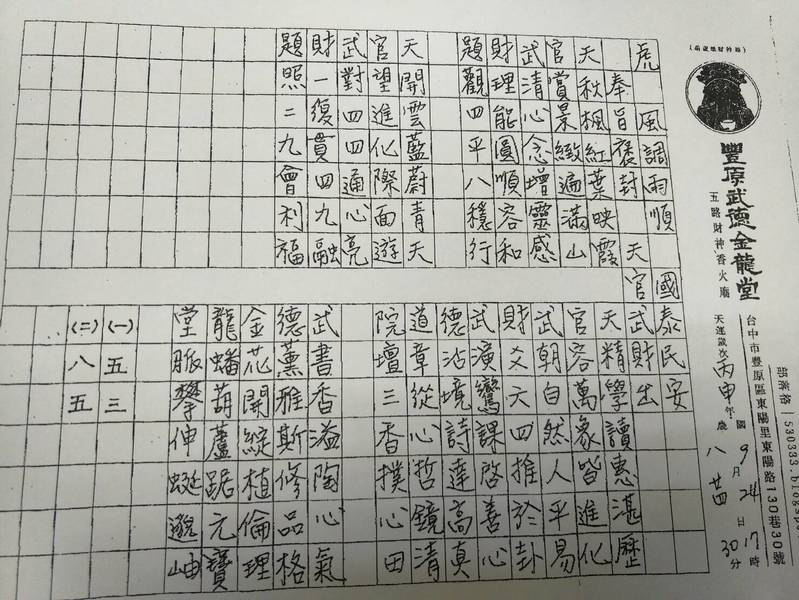 部落格｜530333.blogspo
台中市豐原區東陽里東陽路130巷30號
豐原武德金龍堂
五路財神香火廟
天運歲次丙申年 八 廿四
國 9月24日17時30分
虎 風調雨順 國泰民安
奉旨褒封 天官武財出
天秋楓紅葉映霞
官賞景緻遍滿山
武清心念增靈感
財理能圓順容和
題觀四平八穩行
天開雲藍蔚青天
官望進化際面遊
武對四四通心亮
財一復貫四九融
題照二九會利福
天精學讀惠湛歷
官容萬象皆進化
武朝自然人平易
財爻六四推於卦
武演鸞課啟善心
德沾境詩達高真
道章從心哲鏡清
院壇三香撲心田
武書香溢陶心氣
德薰雅斯修品格
金花開綻植倫理
龍蟠葫蘆踞元寶
堂脈攀伸蜒邈岫
(一) 五三
(二) 八五